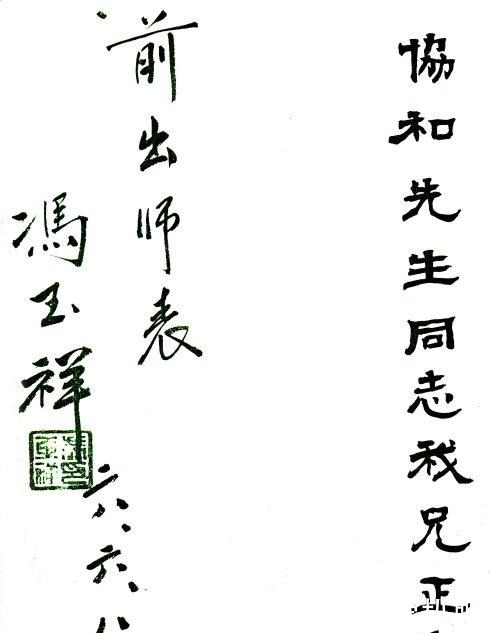 協和先生同志我兄正
前出师表
馮玉祥
二八、六、八